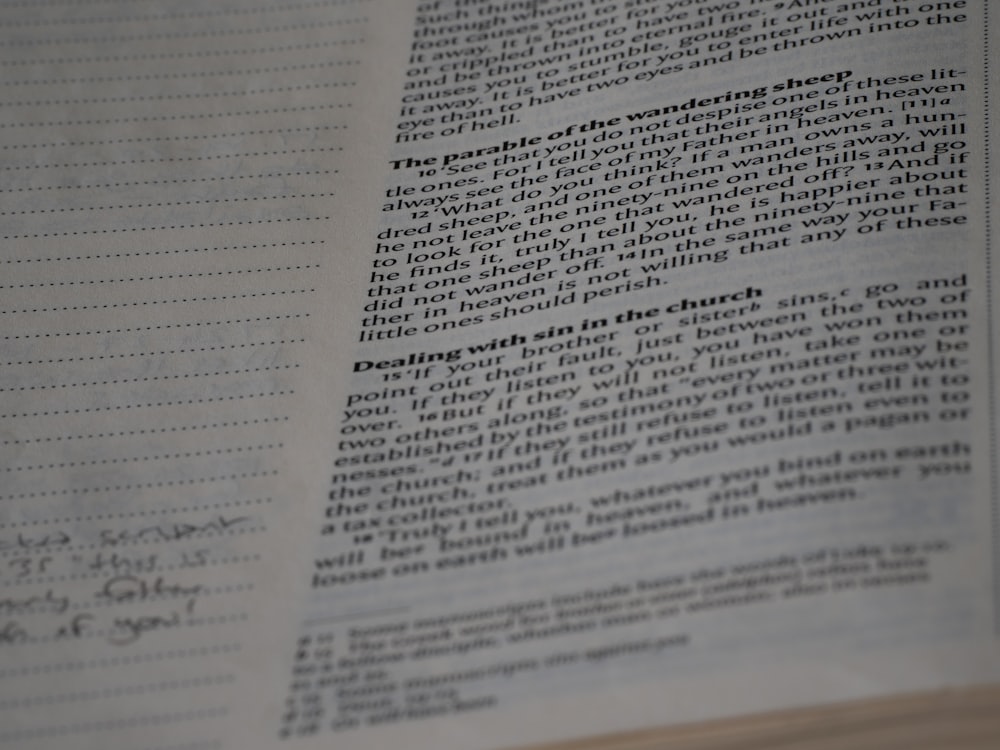 Such things
through whom
foot causes you to
it away. It is better for you
or crippled than to have two
and be thrown into eternal fire. ⁹And
causes you to stumble, gouge it out and
it away. It is better for you to enter life with one
eye than to have two eyes and be thrown into the
fire of hell.
The parable of the wandering sheep
¹⁰‘See that you do not despise one of these lit-
tle ones. For I tell you that their angels in heaven
always see the face of my Father in heaven. [11] a
¹²‘What do you think? If a man owns a hun-
dred sheep, and one of them wanders away, will
he not leave the ninety-nine on the hills and go
to look for the one that wandered off? ¹³And if
he finds it, truly I tell you, he is happier about
that one sheep than about the ninety-nine that
did not wander off. ¹⁴In the same way your Fa-
ther in heaven is not willing that any of these
little ones should perish.
Dealing with sin in the church
¹⁵‘If your brother or sister b sins, c go and
point out their fault, just between the two of
you. If they listen to you, you have won them
over. ¹⁶But if they will not listen, take one or
two others along, so that “every matter may be
established by the testimony of two or three wit-
nesses.” d ¹⁷If they still refuse to listen, tell it to
the church; and if they refuse to listen even to
the church, treat them as you would a pagan or
a tax collector.
¹⁸‘Truly I tell you, whatever you bind on earth
will be e bound in heaven, and whatever you
loose on earth will be e loosed in heaven.
servant
35 "this is
of you!
Some manuscripts include here the words of Luke